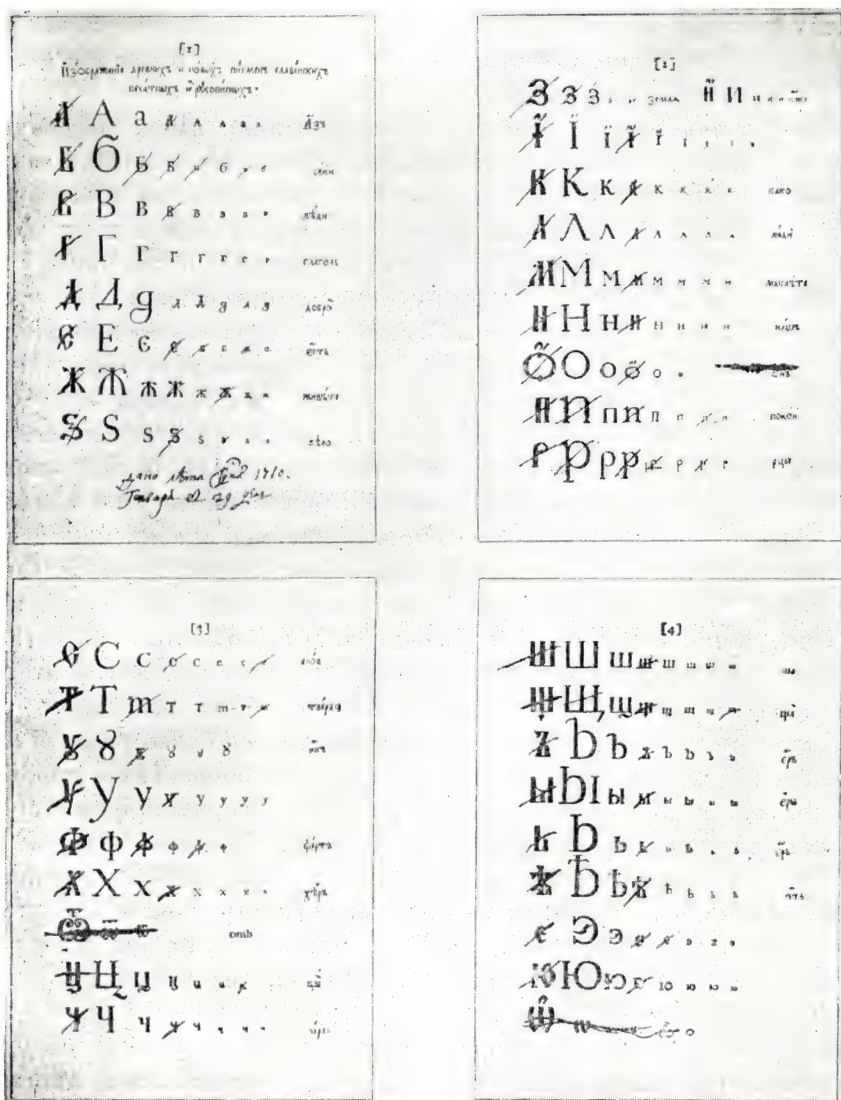 [1]
Изображенїе древнихъ и новыхъ писменъ славенскихъ
печатныхъ и рукописныхъ.
А А а а а а а а азъ
Б Б б б б б
В В в в в в в в вѣди
Г Г г г г г г г глаголь
Д Д д д д д д д добро
Е Е е е е е е е есть
Ж Ж ж ж ж ж ж ж живѣте
Ѕ Ѕ ѕ ѕ ѕ ѕ ѕ ѕ ѕѣло
дано лѣта 1710.
Генваря 29
[2]
З З з з з земля И И и и иже
Ї Ї ї ї ї ї ї ї
К К к к к к к к како
Л Л л л л л л л люди
М М м м м м м м мыслѣте
Н Н н н н н н н нашъ
О О о о о о онъ
П П п п п п п п покои
Р Р р р р р р р рцы
[3]
С С с с с с с с слово
Т Т т т т т т т твердо
Ꙋ Ꙋ ꙋ ꙋ ꙋ ꙋ икъ
У У у у у у у у
Ф Ф ф ф ф ф фертъ
Х Х х х х х х х хѣръ
Ѿ ѿ ѿ отъ
Ц Ц ц ц ц ц ц цы
Ч Ч ч ч ч ч ч ч червь
[4]
Ш Ш ш ш ш ш ш ш ша
Щ Щ щ щ щ щ щ щ ща
Ъ Ъ ъ ъ ъ ъ ъ ъ еръ
Ы Ы ы ы ы ы ы ы еры
Ь Ь ь ь ь ь ь ь ерь
Ѣ Ѣ ѣ ѣ ѣ ѣ ѣ ѣ ять
Э э э э э э э
Ю Ю ю ю ю ю ю ю